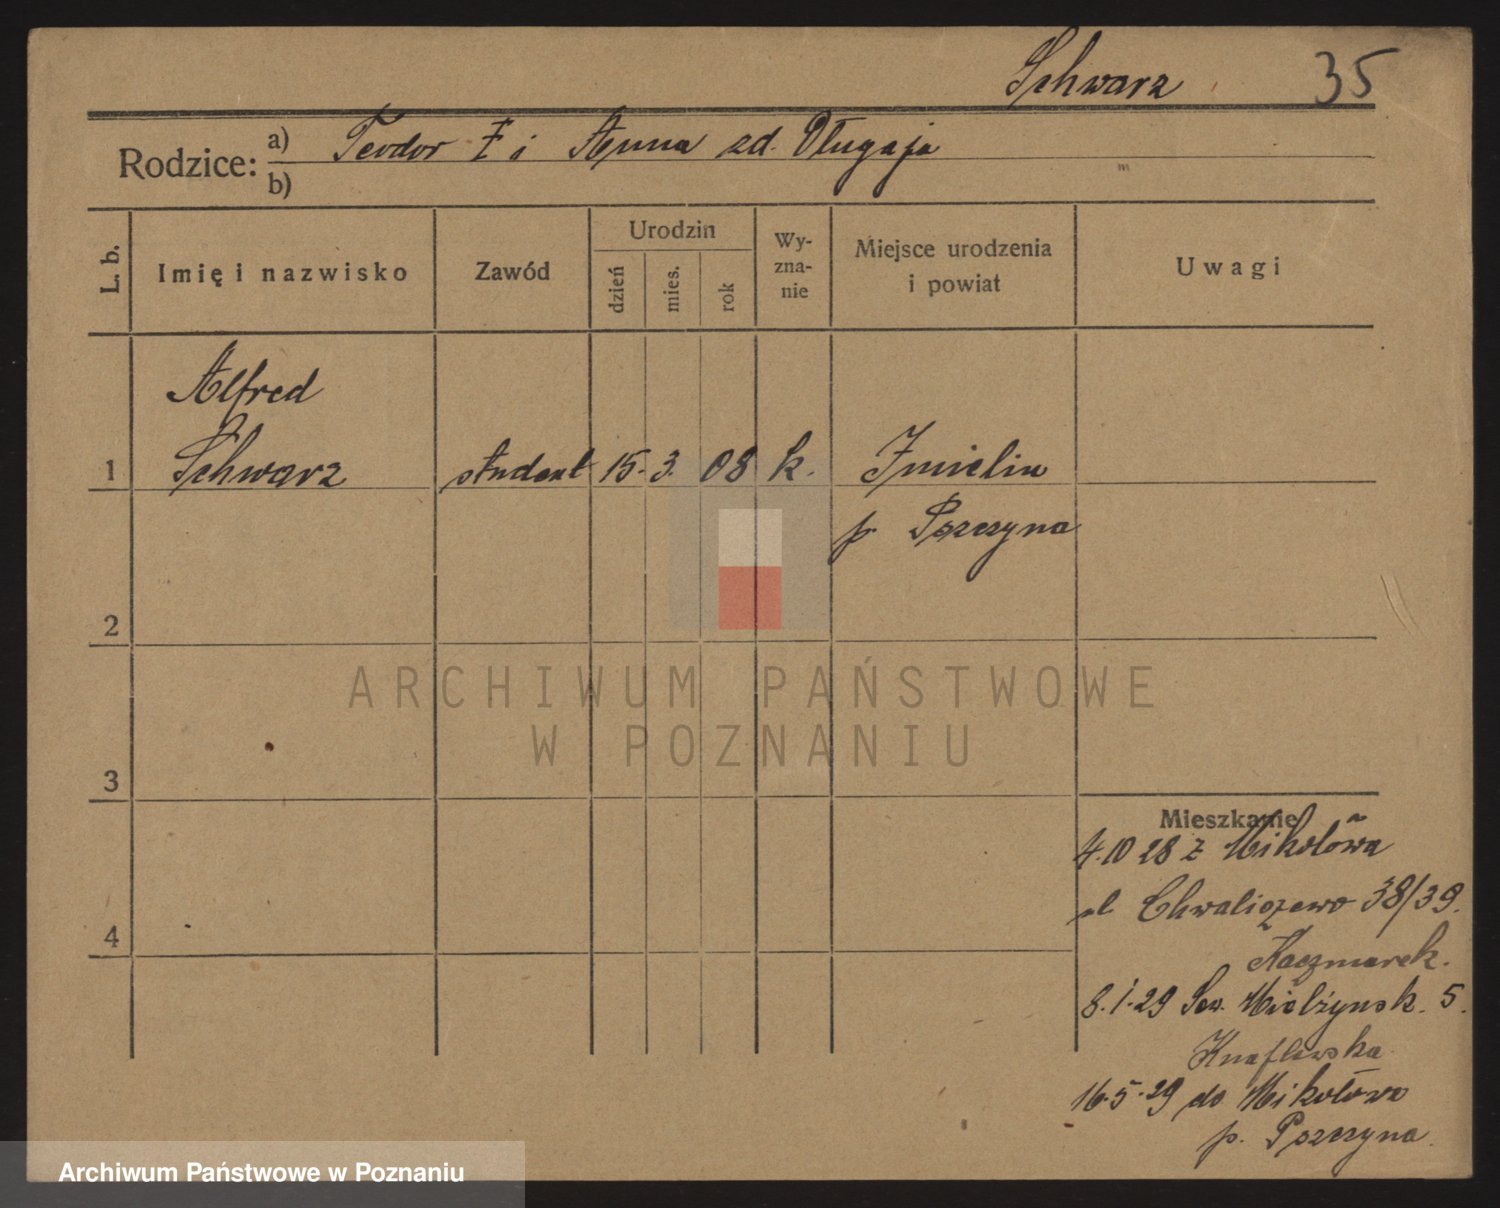 Schwarz 35
Rodzice: a) Teodor i Anna zd. Długaja
b)
L. b. Imię i nazwisko Zawód Urodzin dzień mies. rok Wy-zna-nie Miejsce urodzenia i powiat Uwagi
Alfred
1 Schwarz student 15. 3. 08 k. Imielin
p. Pszczyna
2
ARCHIWUM PAŃSTWOWE
W POZNANIU
3
Mieszkanie
4.10 28 z Mikołówa
ul. Chwaliszewo 38/39.
4
Kaczmarek.
8.1.29 Sew. Mielżyńsk. 5.
Knaflewska
16.5.29 do Mikołowa
p. Pszczyna.
Archiwum Państwowe w Poznaniu